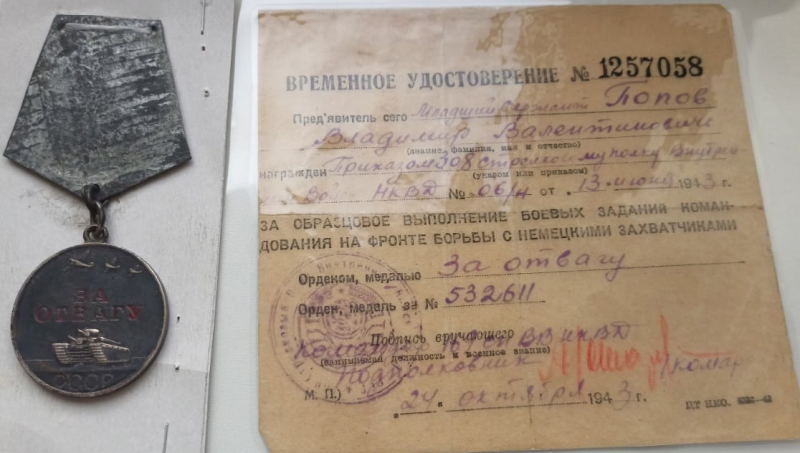 ЗА
ОТВАГУ
СССР
ВРЕМЕННОЕ УДОСТОВЕРЕНИЕ № 1257058
Пред'явитель сего Младший Сержант Попов
Владимир Валентинович
(звание, фамилия, имя и отчество)
награжден Приказом 308 стрелковому полку Внутрен
(указом или приказом)
Вой НКВД № 06/н от 13 июня 1943 г.
ЗА ОБРАЗЦОВОЕ ВЫПОЛНЕНИЕ БОЕВЫХ ЗАДАНИЯ КОМАН-
ДОВАНИЯ НА ФРОНТЕ БОРЬБЫ С НЕМЕЦКИМИ ЗАХВАТЧИКАМИ
Орденом, медалью За отвагу
Орден, медаль за № 532611
Подпись вручающего
ВВ НКВД
(занимаемая должность и военное звание)
Подполковник
М. П.) 24 октября 1943 г.